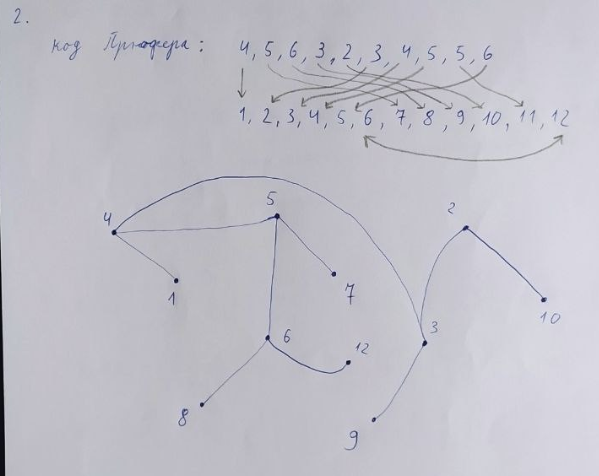 2.
код Прюфера: 4, 5, 6, 3, 2, 3, 4, 5, 5, 6
1, 2, 3, 4, 5, 6, 7, 8, 9, 10, 11, 12
4
5
2
1
7
10
6
12
3
8
9